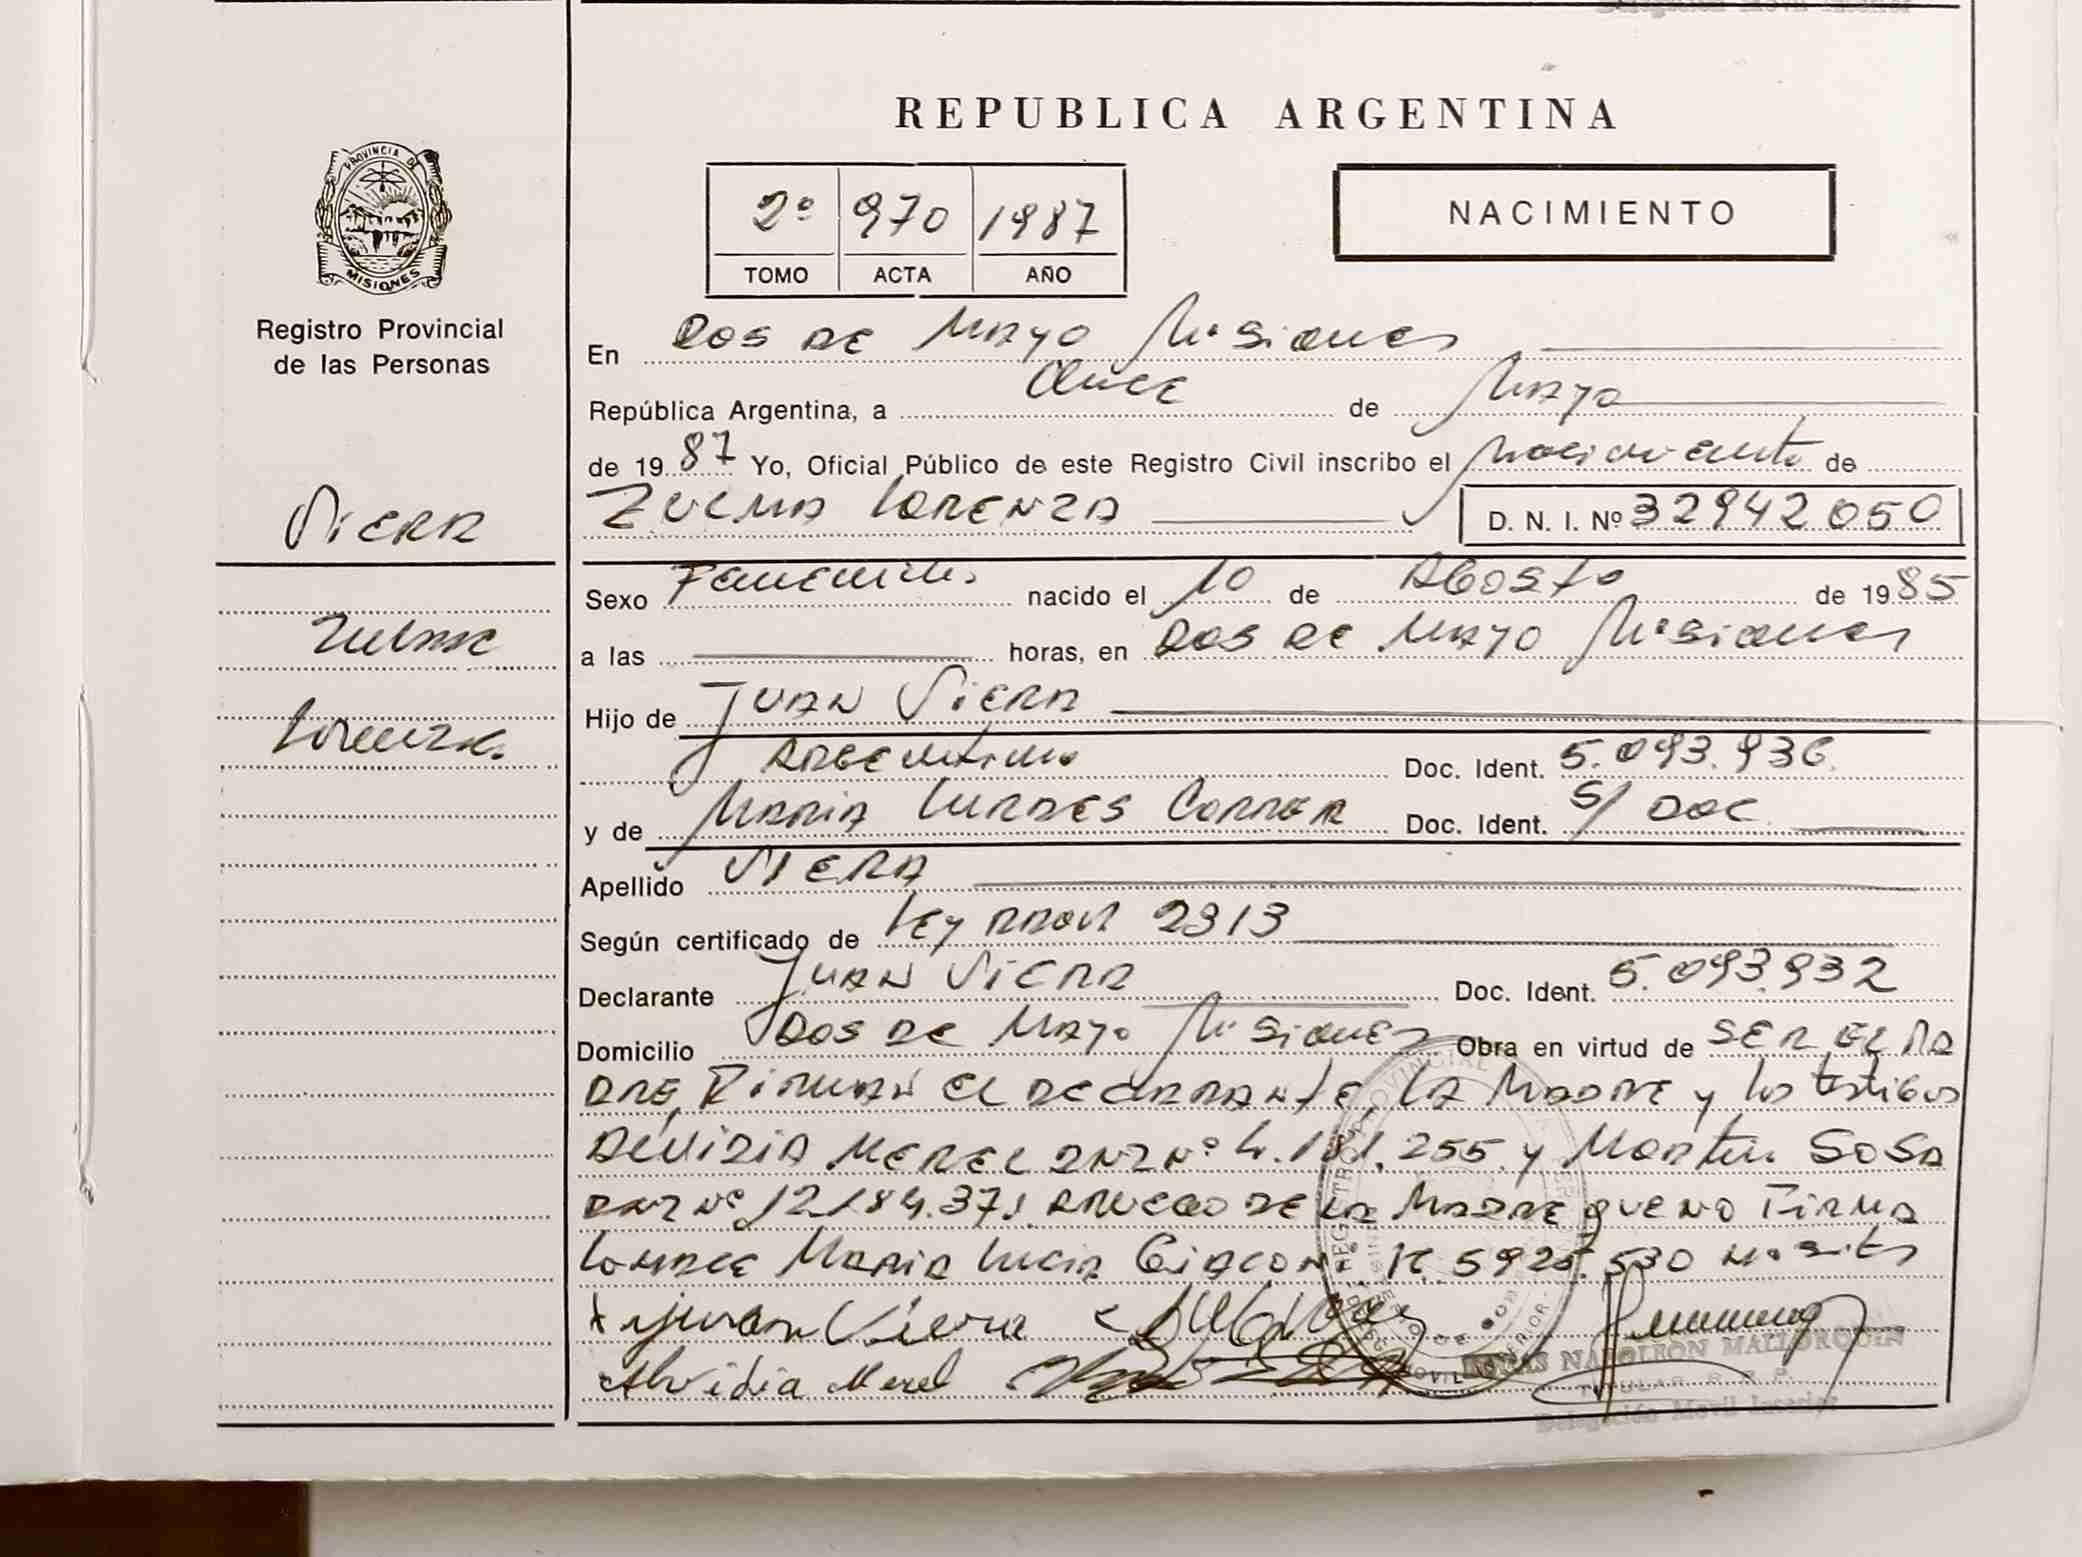 REPUBLICA ARGENTINA
PROVINCIA DE
MISIONES
Registro Provincial
de las Personas
2º 970 1987
TOMO ACTA AÑO
NACIMIENTO
En Dos de Mayo Misiones
República Argentina, a Once de Mayo
de 1987 Yo, Oficial Público de este Registro Civil inscribo el nacimiento de
Viera
ZULMA LORENZA D. N. I. Nº 32942050
Sexo Femenino nacido el 10 de Agosto de 1985
Zulma
a las horas, en Dos de Mayo Misiones
Lorenza
Hijo de Juan Viera
Argentino Doc. Ident. 5.093.936
y de Maria Lurdes Correr Doc. Ident. S/ DOC
Apellido VIERA
Según certificado de Ley Prov 2313
Declarante Juan Viera Doc. Ident. 5.093.932
Domicilio Dos de Mayo Misiones Obra en virtud de SER EL PA
DRE, Firman el declarante, la Madre y los testigos
Alvidia Merel DNI Nº 4.181.255 y Martin SOSA
DNI Nº 12.184.371 de la Madre que no Firma
Lo hace Maria Lucia Giacomi 5925.530
Juan Viera
Alvidia Merel
NAPOLEON MALLORQUIN
TITULAR R. P.
Delegación Movil Interior